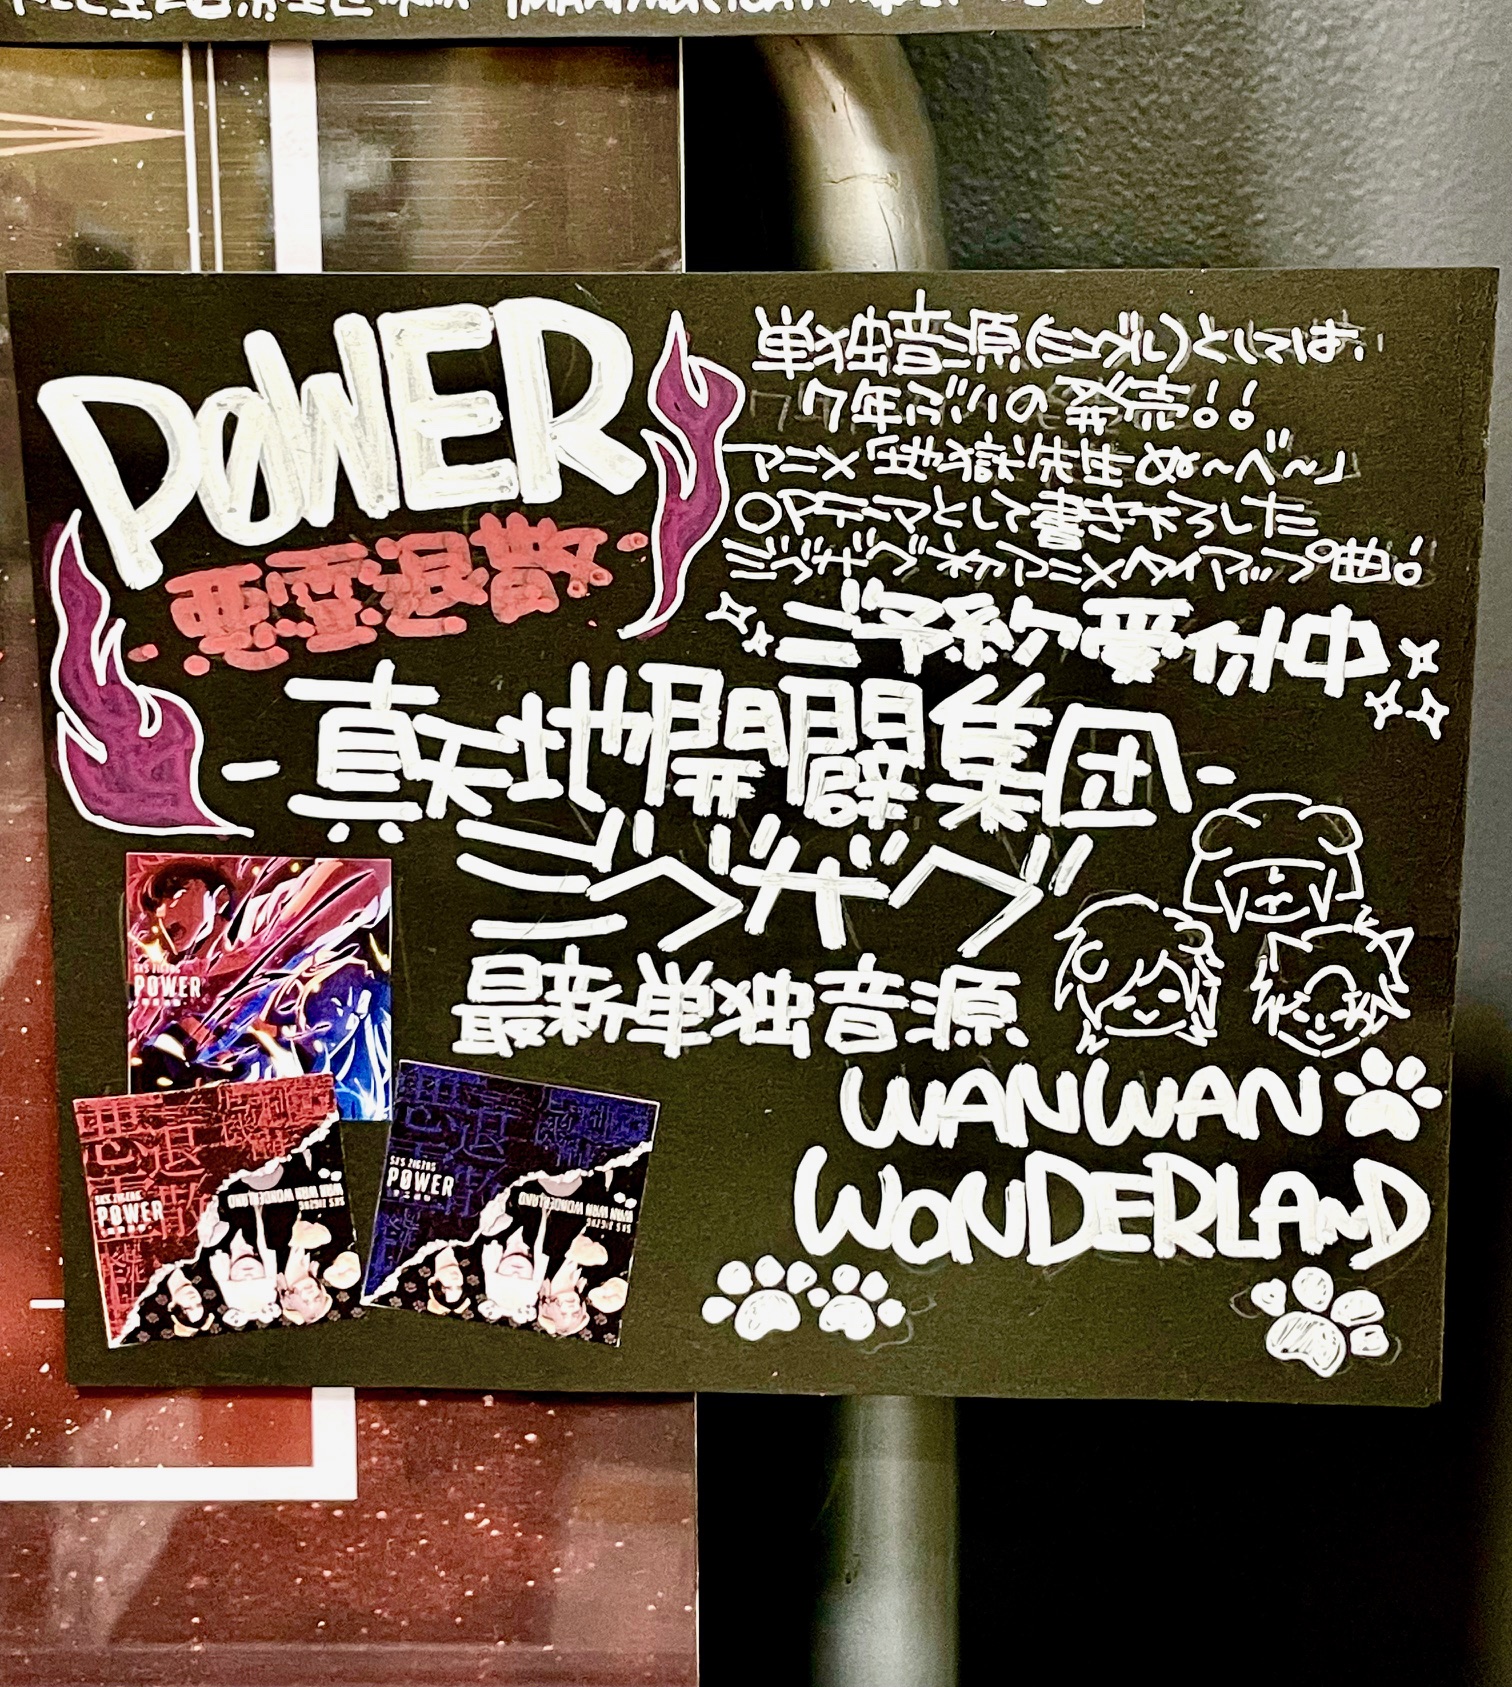 PØWER
悪霊退散
単独音源(シングル)としては、
7年ぶりの発売!!
アニメ「地獄先生ぬ〜べ〜」
OPテーマとして書き下ろした
ジグザグ初アニメタイアップ曲!
ご予約受付中
-真天地開闢集団-
ジグザグ
最新単独音源
WANWAN
WONDERLAND
POWER
悪霊退散
SXS ZIGZAG
PØWER
WAN WAN WONDERLAND
SXS ZIGZAG
SXS ZIGZAG
PØWER
WAN WAN WONDERLAND
SXS ZIGZAG